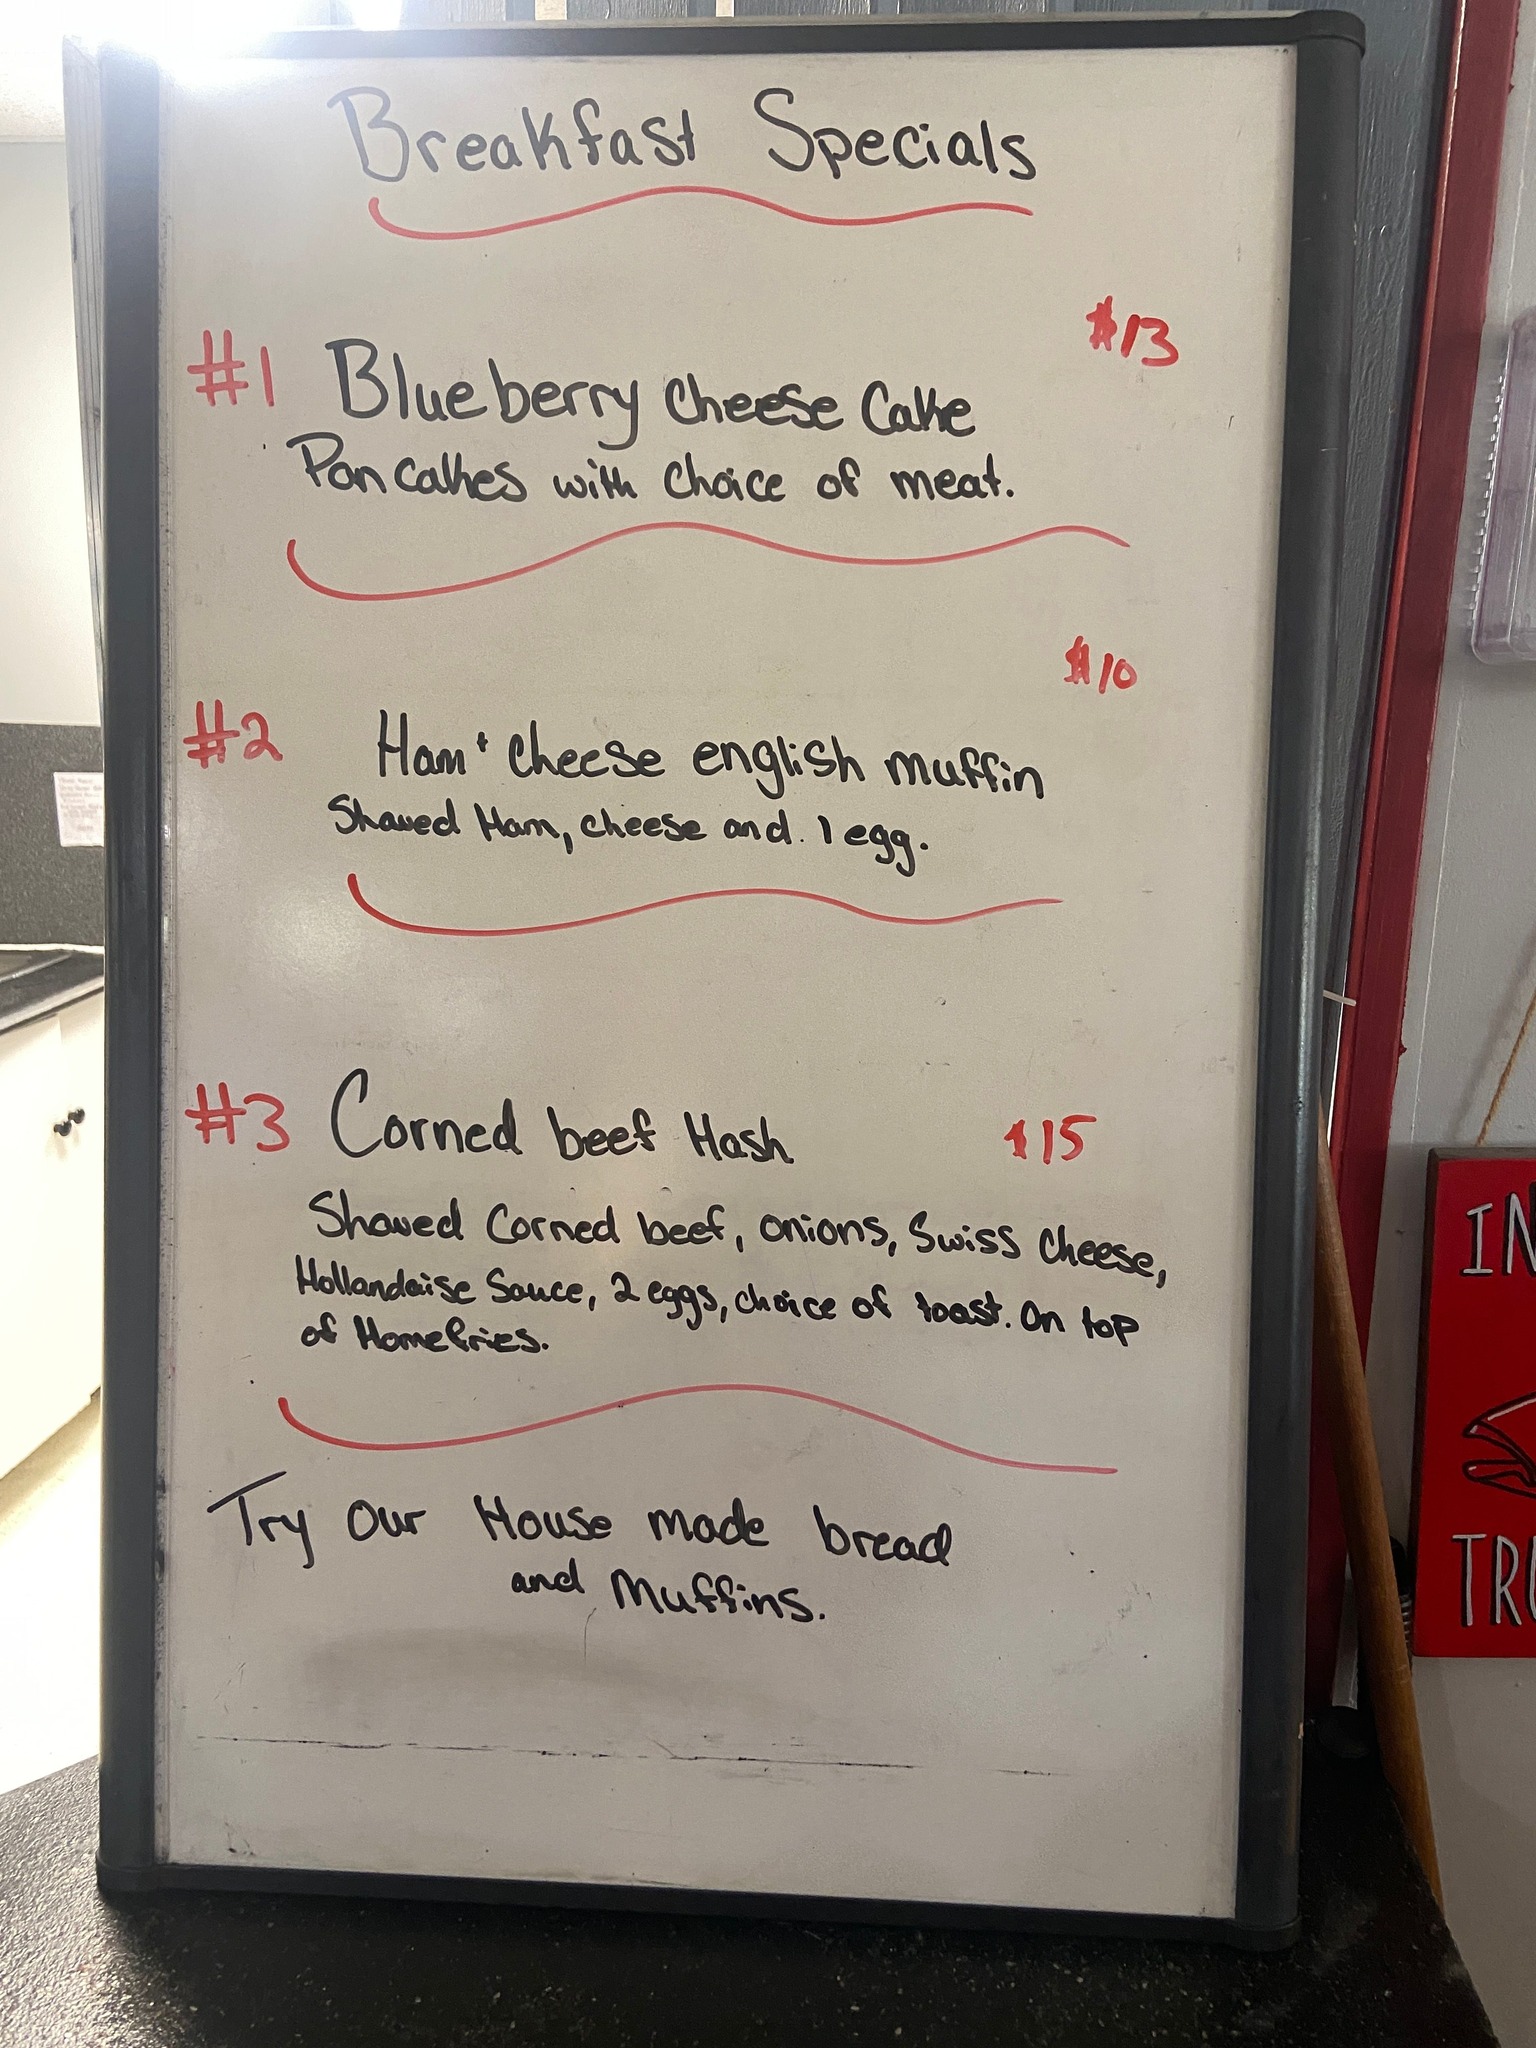 Breakfast Specials
$13
#1 Blueberry Cheese Cake
Pancakes with choice of meat.
$10
#2 Ham + cheese english muffin
Shaved Ham, cheese and. 1 egg.
#3 Corned beef Hash $15
Shaved Corned beef, onions, Swiss cheese,
Hollandaise Sauce, 2 eggs, choice of toast. On top
of Homefries.
Try Our House made bread
and Muffins.
IN
TRU